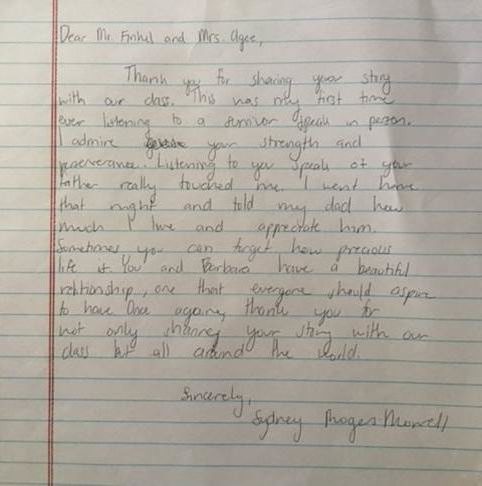 Dear Mr. Finkel and Mrs. Agee,
Thank you for sharing your story
with our class. This was my first time
ever listening to a survivor speak in person.
I admire your strength and
perserverance. Listening to you speak of your
father really touched me. I went home
that night and told my dad how
much I love and appreciate him.
Sometimes you can forget how precious
life is. You and Barbara have a beautiful
relationship, one that everyone should aspire
to have. Once again, thank you for
not only sharing your story with our
class but all around the world.
Sincerely,
Sydney